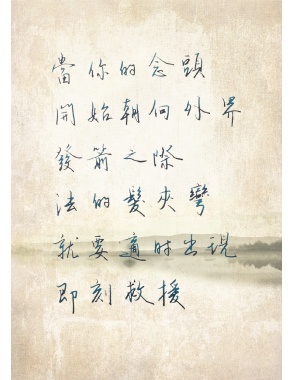 當你的念頭
開始朝向外界
發箭之際
法的髮夾彎
就要適時出現
即刻救援